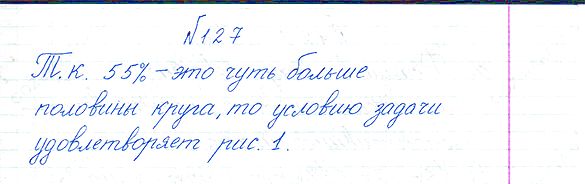 №127
Т.к. 55% – это чуть больше
половины круга, то условию задачи
удовлетворяет рис. 1.